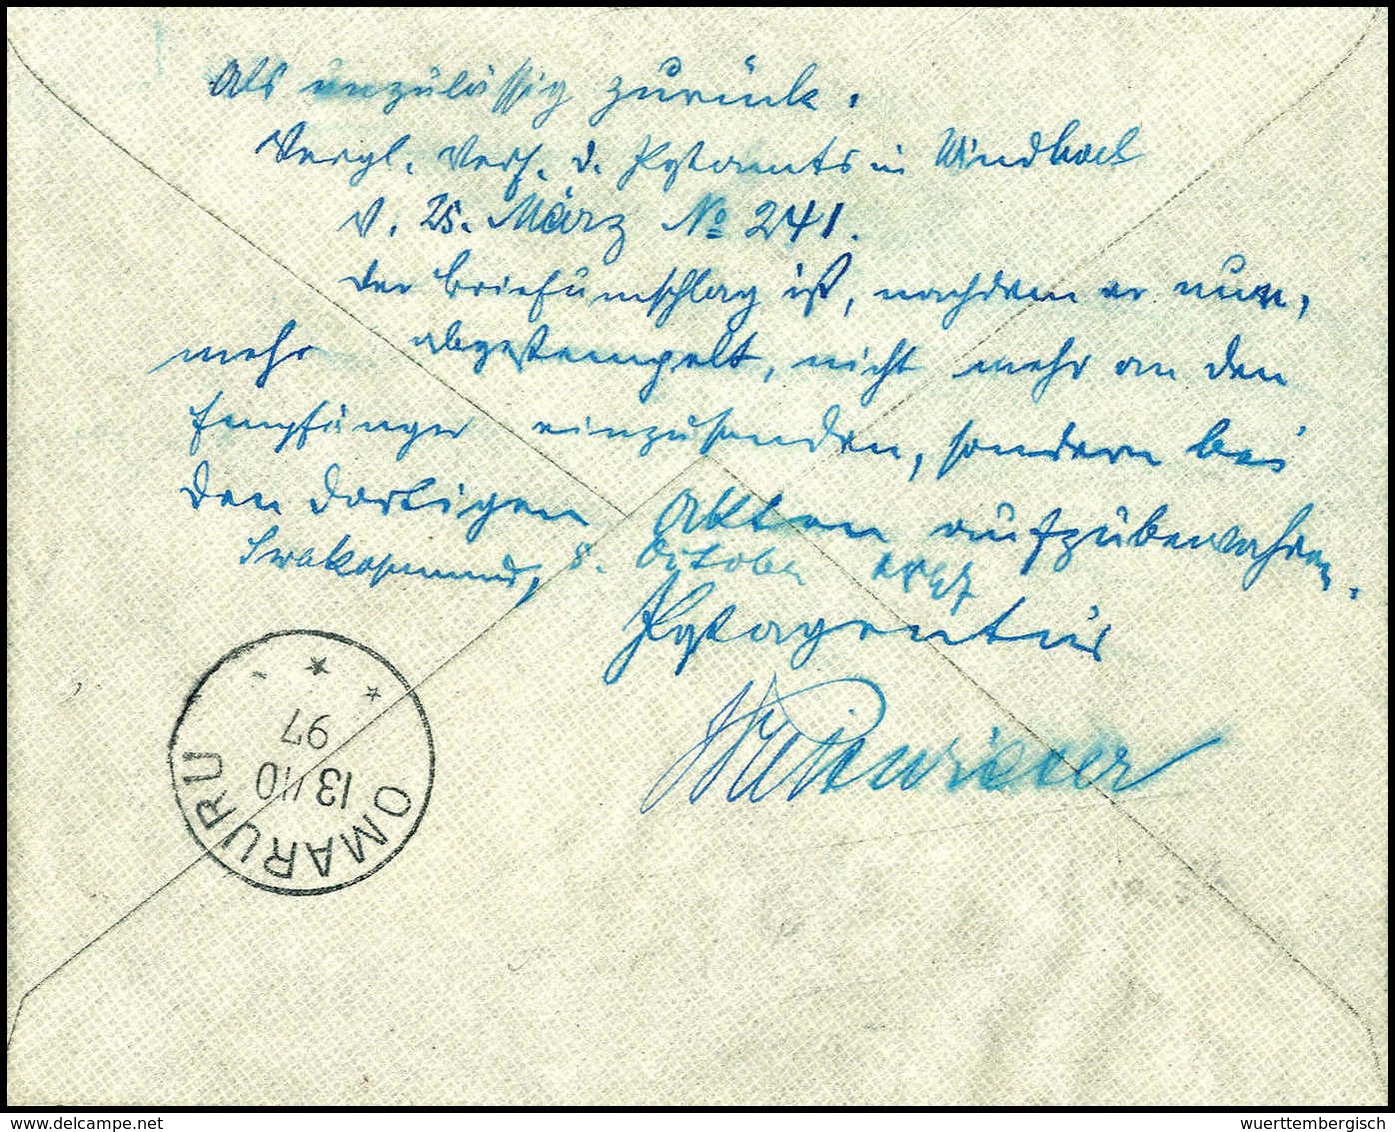 Als unzulässig zurück.
Vergl. Verf. d. Postamts in Windhoek
v. 25. März No 241.
Der Briefumschlag ist, nachdem er nun,
mehr abgestempelt, nicht mehr an den
Empfänger einzusenden, sondern bei
den dortigen Akten aufzubewahren.
Swakopmund, 8. October 1897
Postagentur
OMARURU
13/10
97
wuerttembergisch